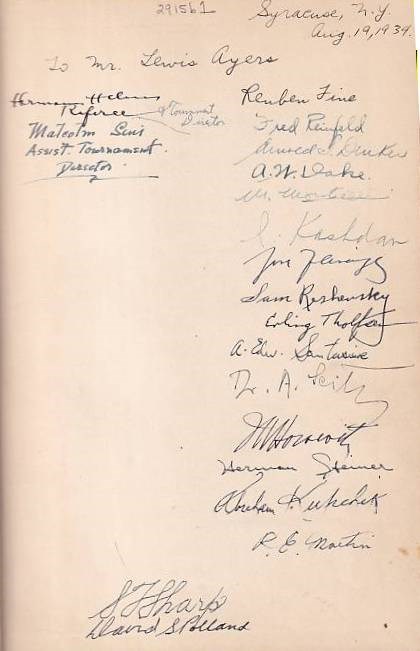 291561
Syracuse, N.Y.
Aug. 19, 1934
To Mr. Lewis Ayers
Herman Helms
Referee & Tournament
Director
Malcolm Sims
Assist. Tournament
Director
Reuben Fine
Fred Reinfeld
Arnold S. Denker
A. W. Dake
M. Monticelli
I. Kashdan
Sam Reshevsky
Erling Tholfsen
A. Edw. Santasiere
Dr. A. Seitz
Horowitz
Herman Steiner
Abraham Kupchik
R. E. Martin
S T Sharp
David S Polland